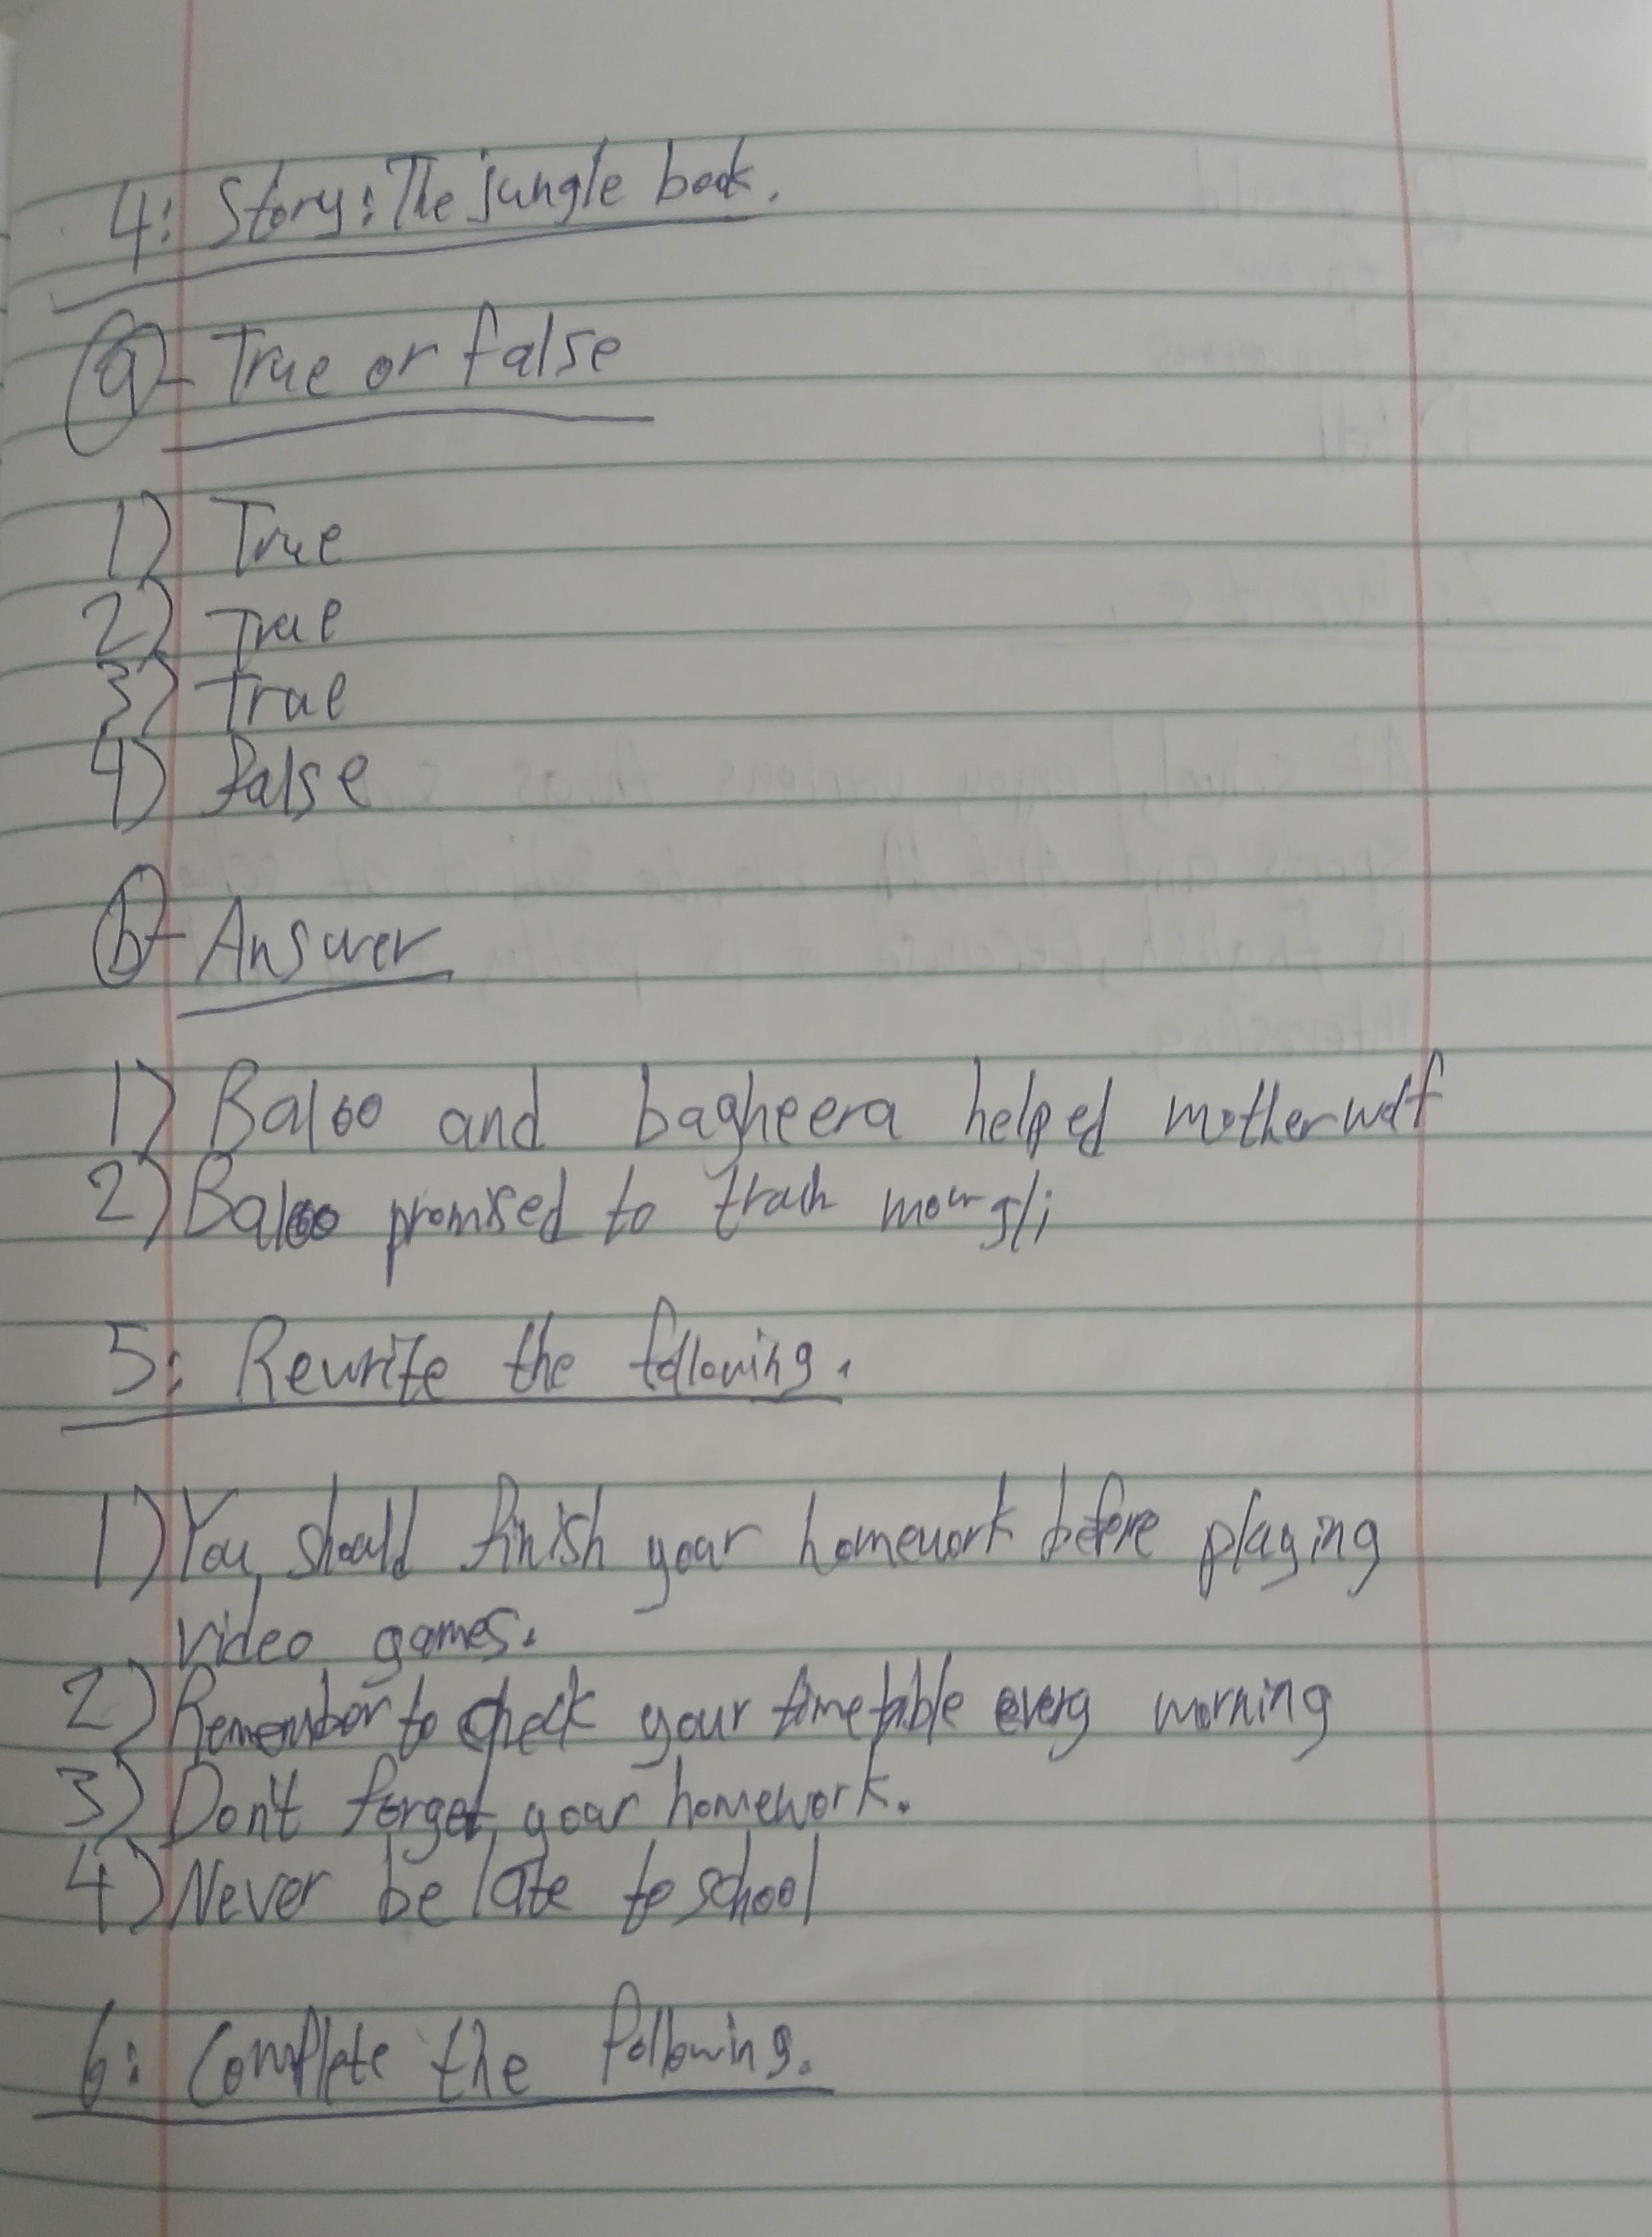 4: Story: The jungle book.
a- True or false
1) True
2) True
3) True
4) False
b- Answer
1) Baloo and bagheera helped motherwolf
2) Baloo promised to mowgli
5: Rewrite the following.
1) You should finish your homework before playing
video games.
2) Remember to check your timetable every morning
3) Don't forget your homework.
4) Never be late to school
6: Complete the following.